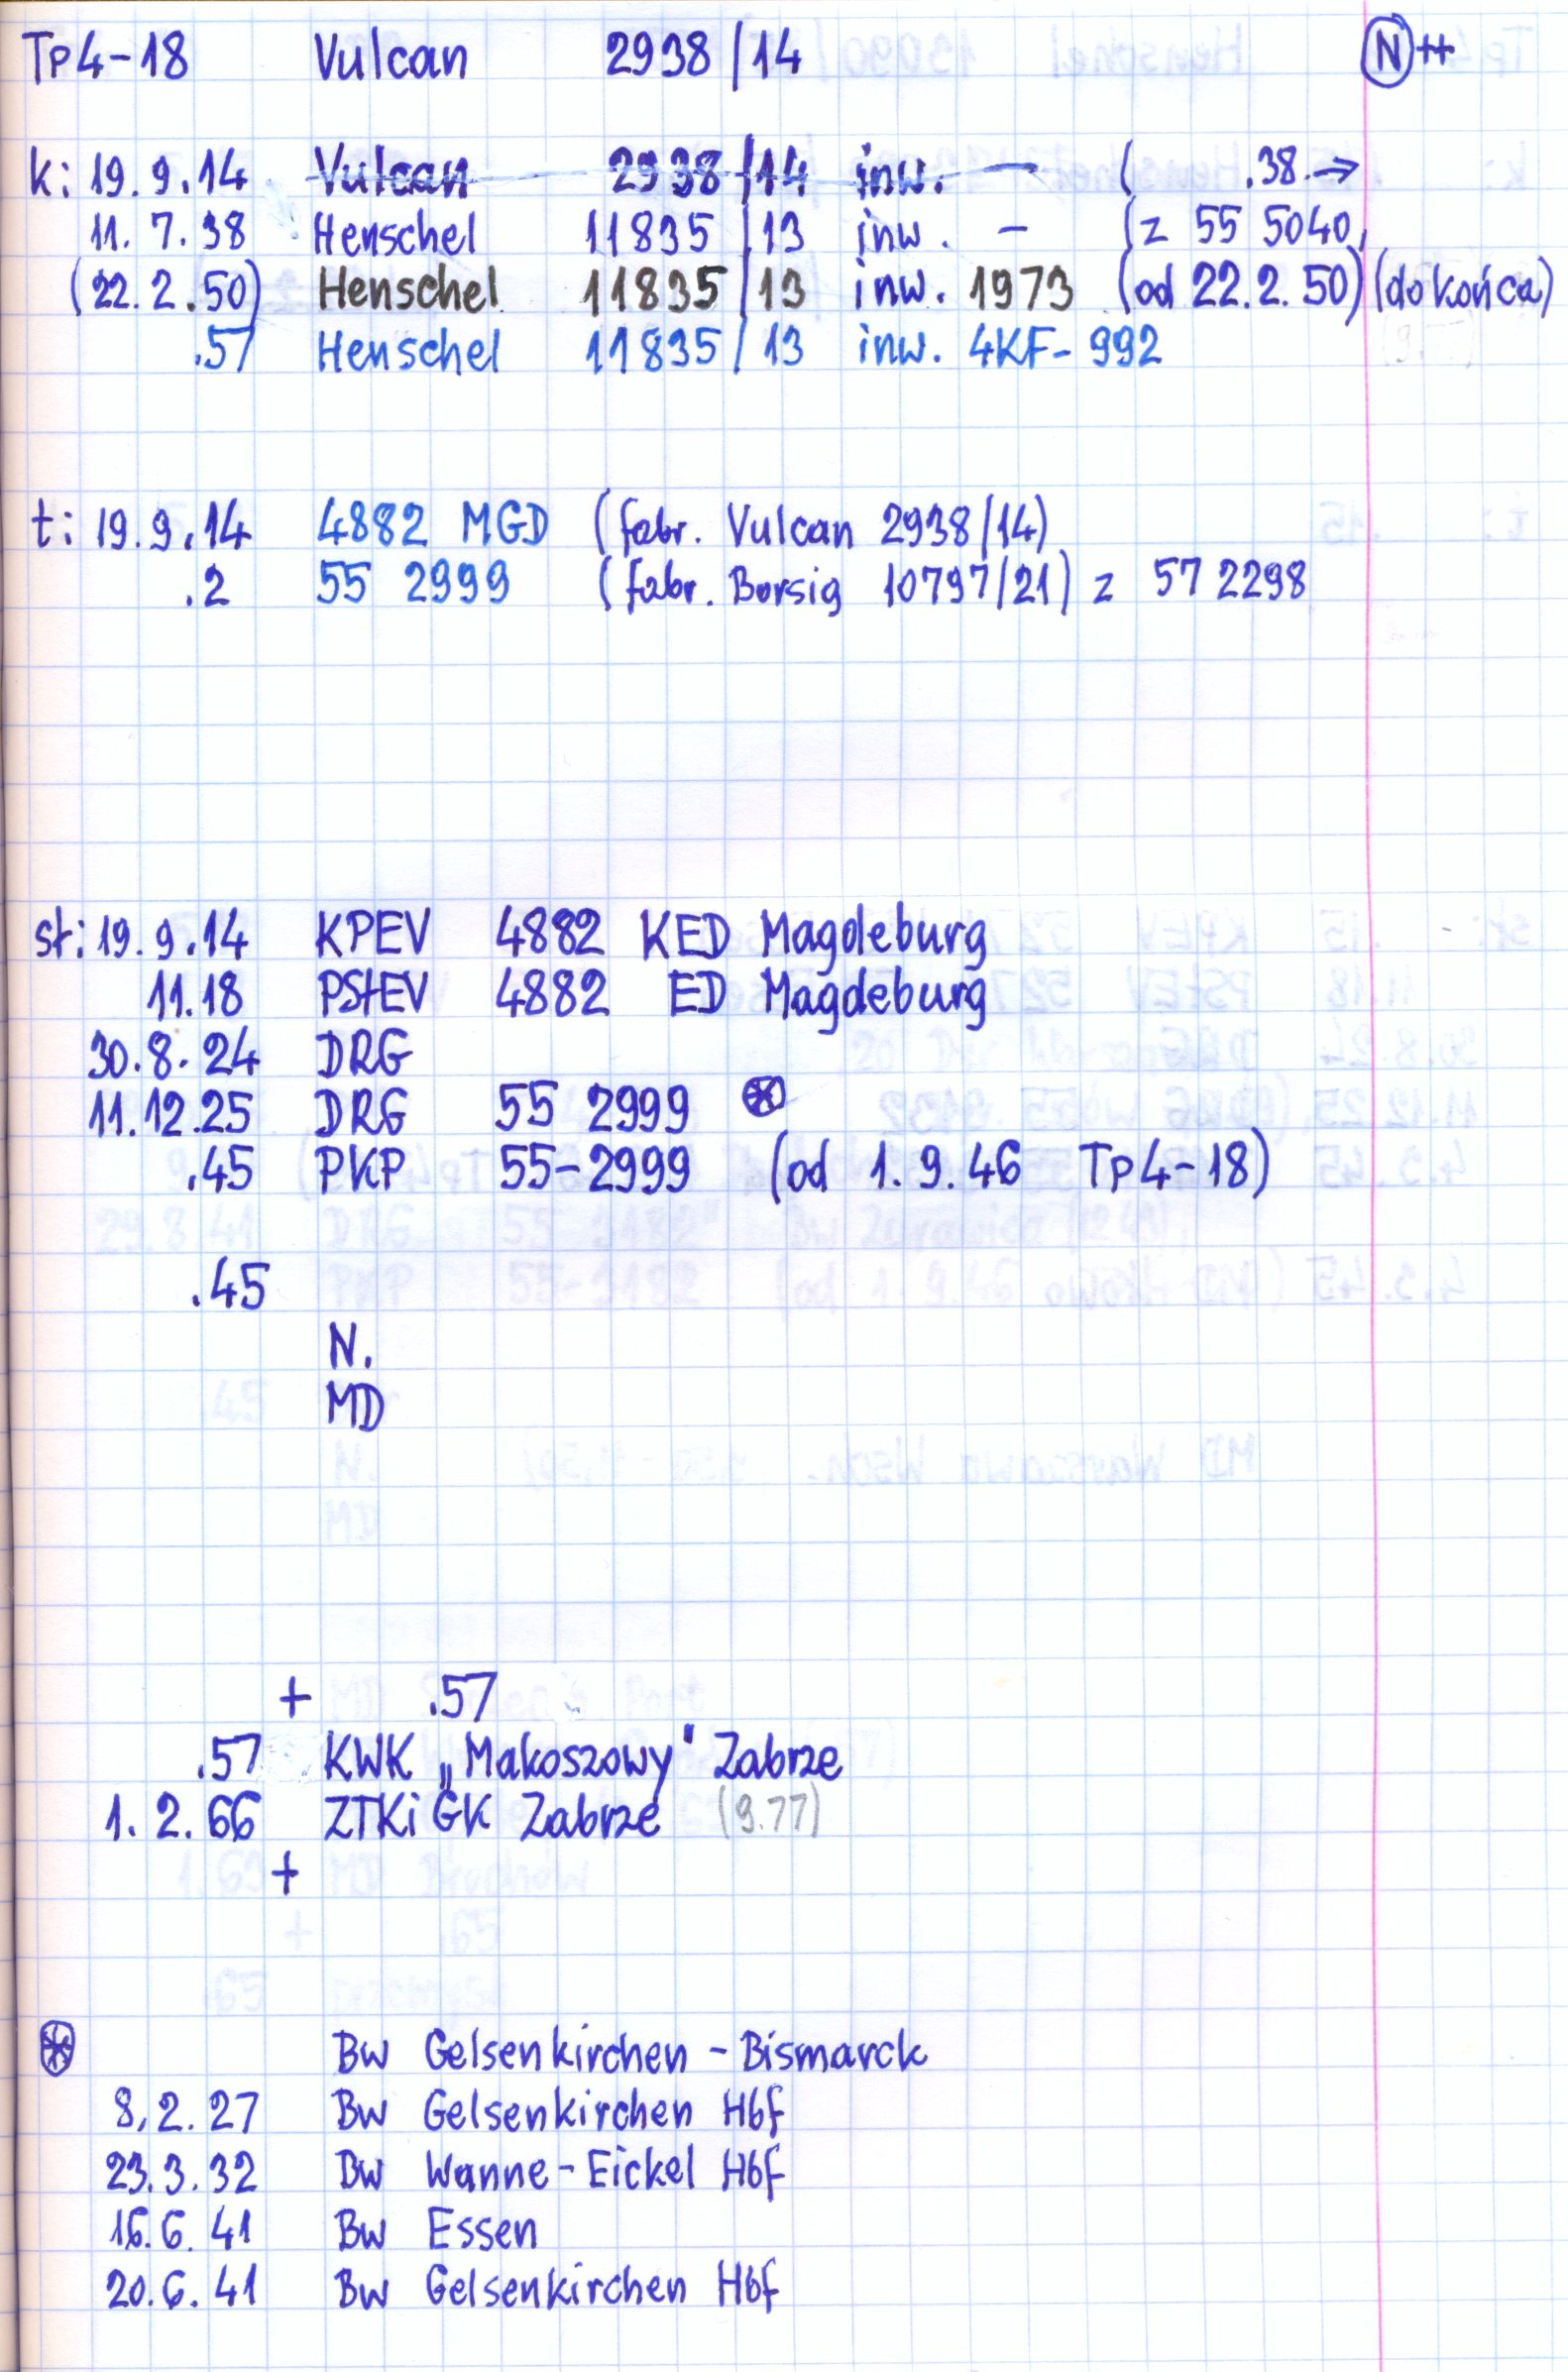 Tp4-18 Vulcan 2938/14 N++
k: 19.9.14 Vulcan 2938/14 inw. — ( .38 →
11.7.38 Henschel 11835/13 inw. - (z 55 5040,
(22.2.50) Henschel 11835/13 inw. 1973 (od 22.2.50) (do końca)
.57 Henschel 11835/13 inw. 4KF-992
t: 19.9.14 4882 MGD (fabr. Vulcan 2938/14)
.2 55 2999 (fabr. Borsig 10797/21) z 57 2298
st: 19.9.14 KPEV 4882 KED Magdeburg
11.18 PStEV 4882 ED Magdeburg
30.8.24 DRG
11.12.25 DRG 55 2999 ⊛
.45 PKP 55-2999 (od 1.9.46 Tp4-18)
.45
N.
MD
+ .57
.57 KWK „Makoszowy" Zabrze
1.2.66 ZTKiGK Zabrze (9.77)
+
⊛ Bw Gelsenkirchen - Bismarck
8.2.27 Bw Gelsenkirchen Hbf
23.3.32 Bw Wanne-Eickel Hbf
16.6.41 Bw Essen
20.6.41 Bw Gelsenkirchen Hbf